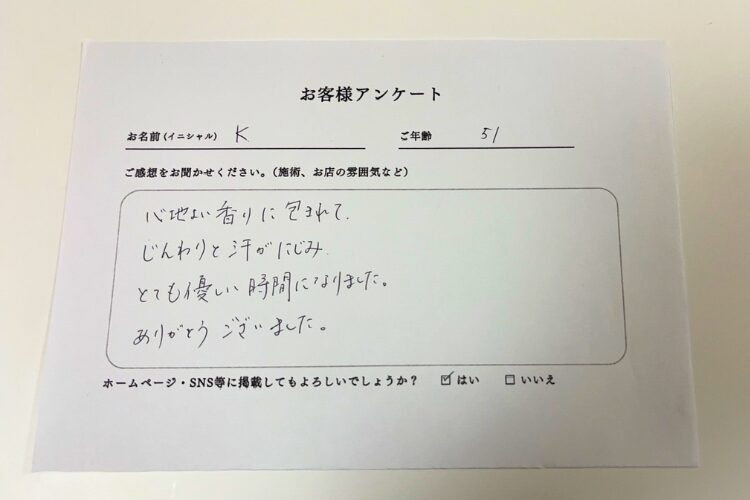 お客様アンケート
お名前(イニシャル) K ご年齢 51
ご感想をお聞かせください。(施術、お店の雰囲気など)
心地よい香りに包まれて、
じんわりと汗がにじみ、
とても優しい時間になりました。
ありがとうございました。
ホームページ・SNS等に掲載してもよろしいでしょうか? ☑はい □いいえ